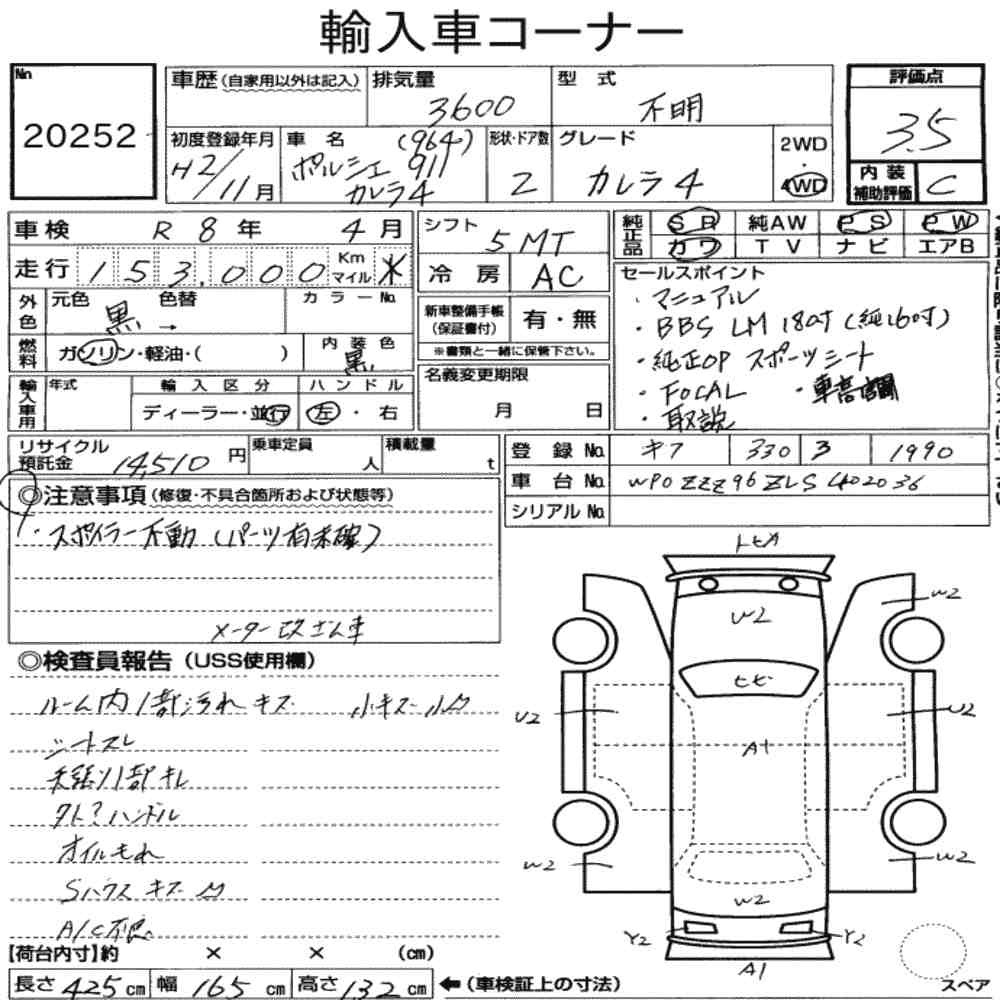 輸入車コーナー
No
20252
車歴 (自家用以外は記入)
排気量
3600
型式
不明
評価点
3.5
初度登録年月
H2/11月
車名
(964)
ポルシェ 911
カレラ4
形状・ドア数
2
グレード
カレラ4
2WD
・
4WD
内装
補助評価
C
車検 R 8年 4月
シフト
5MT
純正品
SR 純AW PS PW
カワ TV ナビ エアB
走行 153,000 Km マイル
冷房 AC
セールスポイント
・マニュアル
・BBS LM 18吋 (純16吋)
・純正OP スポーツシート
・FOCAL ・車高調
・取説
外色
元色 黒 → 色替
カラーNo.
新車整備手帳
(保証書付)
有・無
※書類と一緒に保管下さい。
燃料
ガソリン・軽油・( )
内装色
黒
輸入車用
年式
輸入区分
ディーラー・並行
ハンドル
左・右
名義変更期限
月 日
リサイクル
預託金 14,510円
乗車定員
人
積載量
t
登録No. 330 3 1990
車台No. WP0ZZZ96ZLS402036
シリアルNo.
◎注意事項 (修復・不具合箇所および状態等)
・スポイラー不動 (パーツ有未確)
メーター改ざん車
◎検査員報告 (USS使用欄)
ルーム内1部汚れキズ 小キズ小凹
シートスレ
天張り1部キレ
ハンドル
オイルもれ
Sハウスキズ凹
A/C不良
【荷台内寸】約 × × (cm)
長さ 425cm 幅 165cm 高さ 132cm ←(車検証上の寸法)
トビA
W2
W2
ヒビ
U2
U2
A1
W2
W2
W2
Y2
Y2
A1
スペア